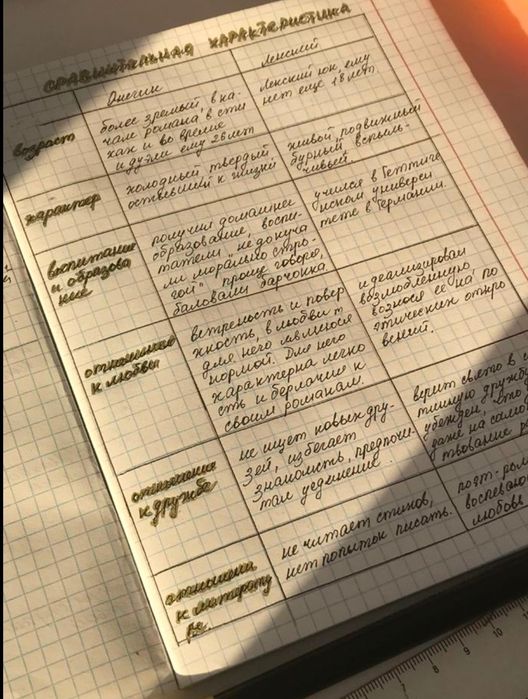 СРАВНИТЕЛЬНАЯ ХАРАКТЕРИСТИКА
Онегин
Ленский
возраст
более зрелый, в на-
чале романа в сти
хах и во время
дуэли ему 26 лет
Ленский юн, ему
нет ещё 18 лет.
характер
холодный, твердый
остывший к жизни
живой, подвижный
бурный, вспыль-
чивый.
воспитание
и образова
ние
получил домашнее
образование, воспи-
татели "не докуча
ли моралью стро-
гой" проще говоря,
баловали барчонка.
учился в Геттинге
нском универси
тете в Германии.
отношение
к любви
ветреность и повер
хность, в любви
для него являлося
нормой. Для него
характерна легко
сть и
своим романам.
идеализировал
возлюбленную,
вознося её на по
этических откро
вений.
отношения
к дружбе
не ищет новых дру-
зей, избегает
знакомств, предпочи-
тал уединение.
верит свято в и
тинную дружбу
убежден, что
даже на само
твование
отношени
к литерату
ре
не читает стихов,
нет попыток писать.
поэт-ром
воспеваю
любовь
7 8 9 10